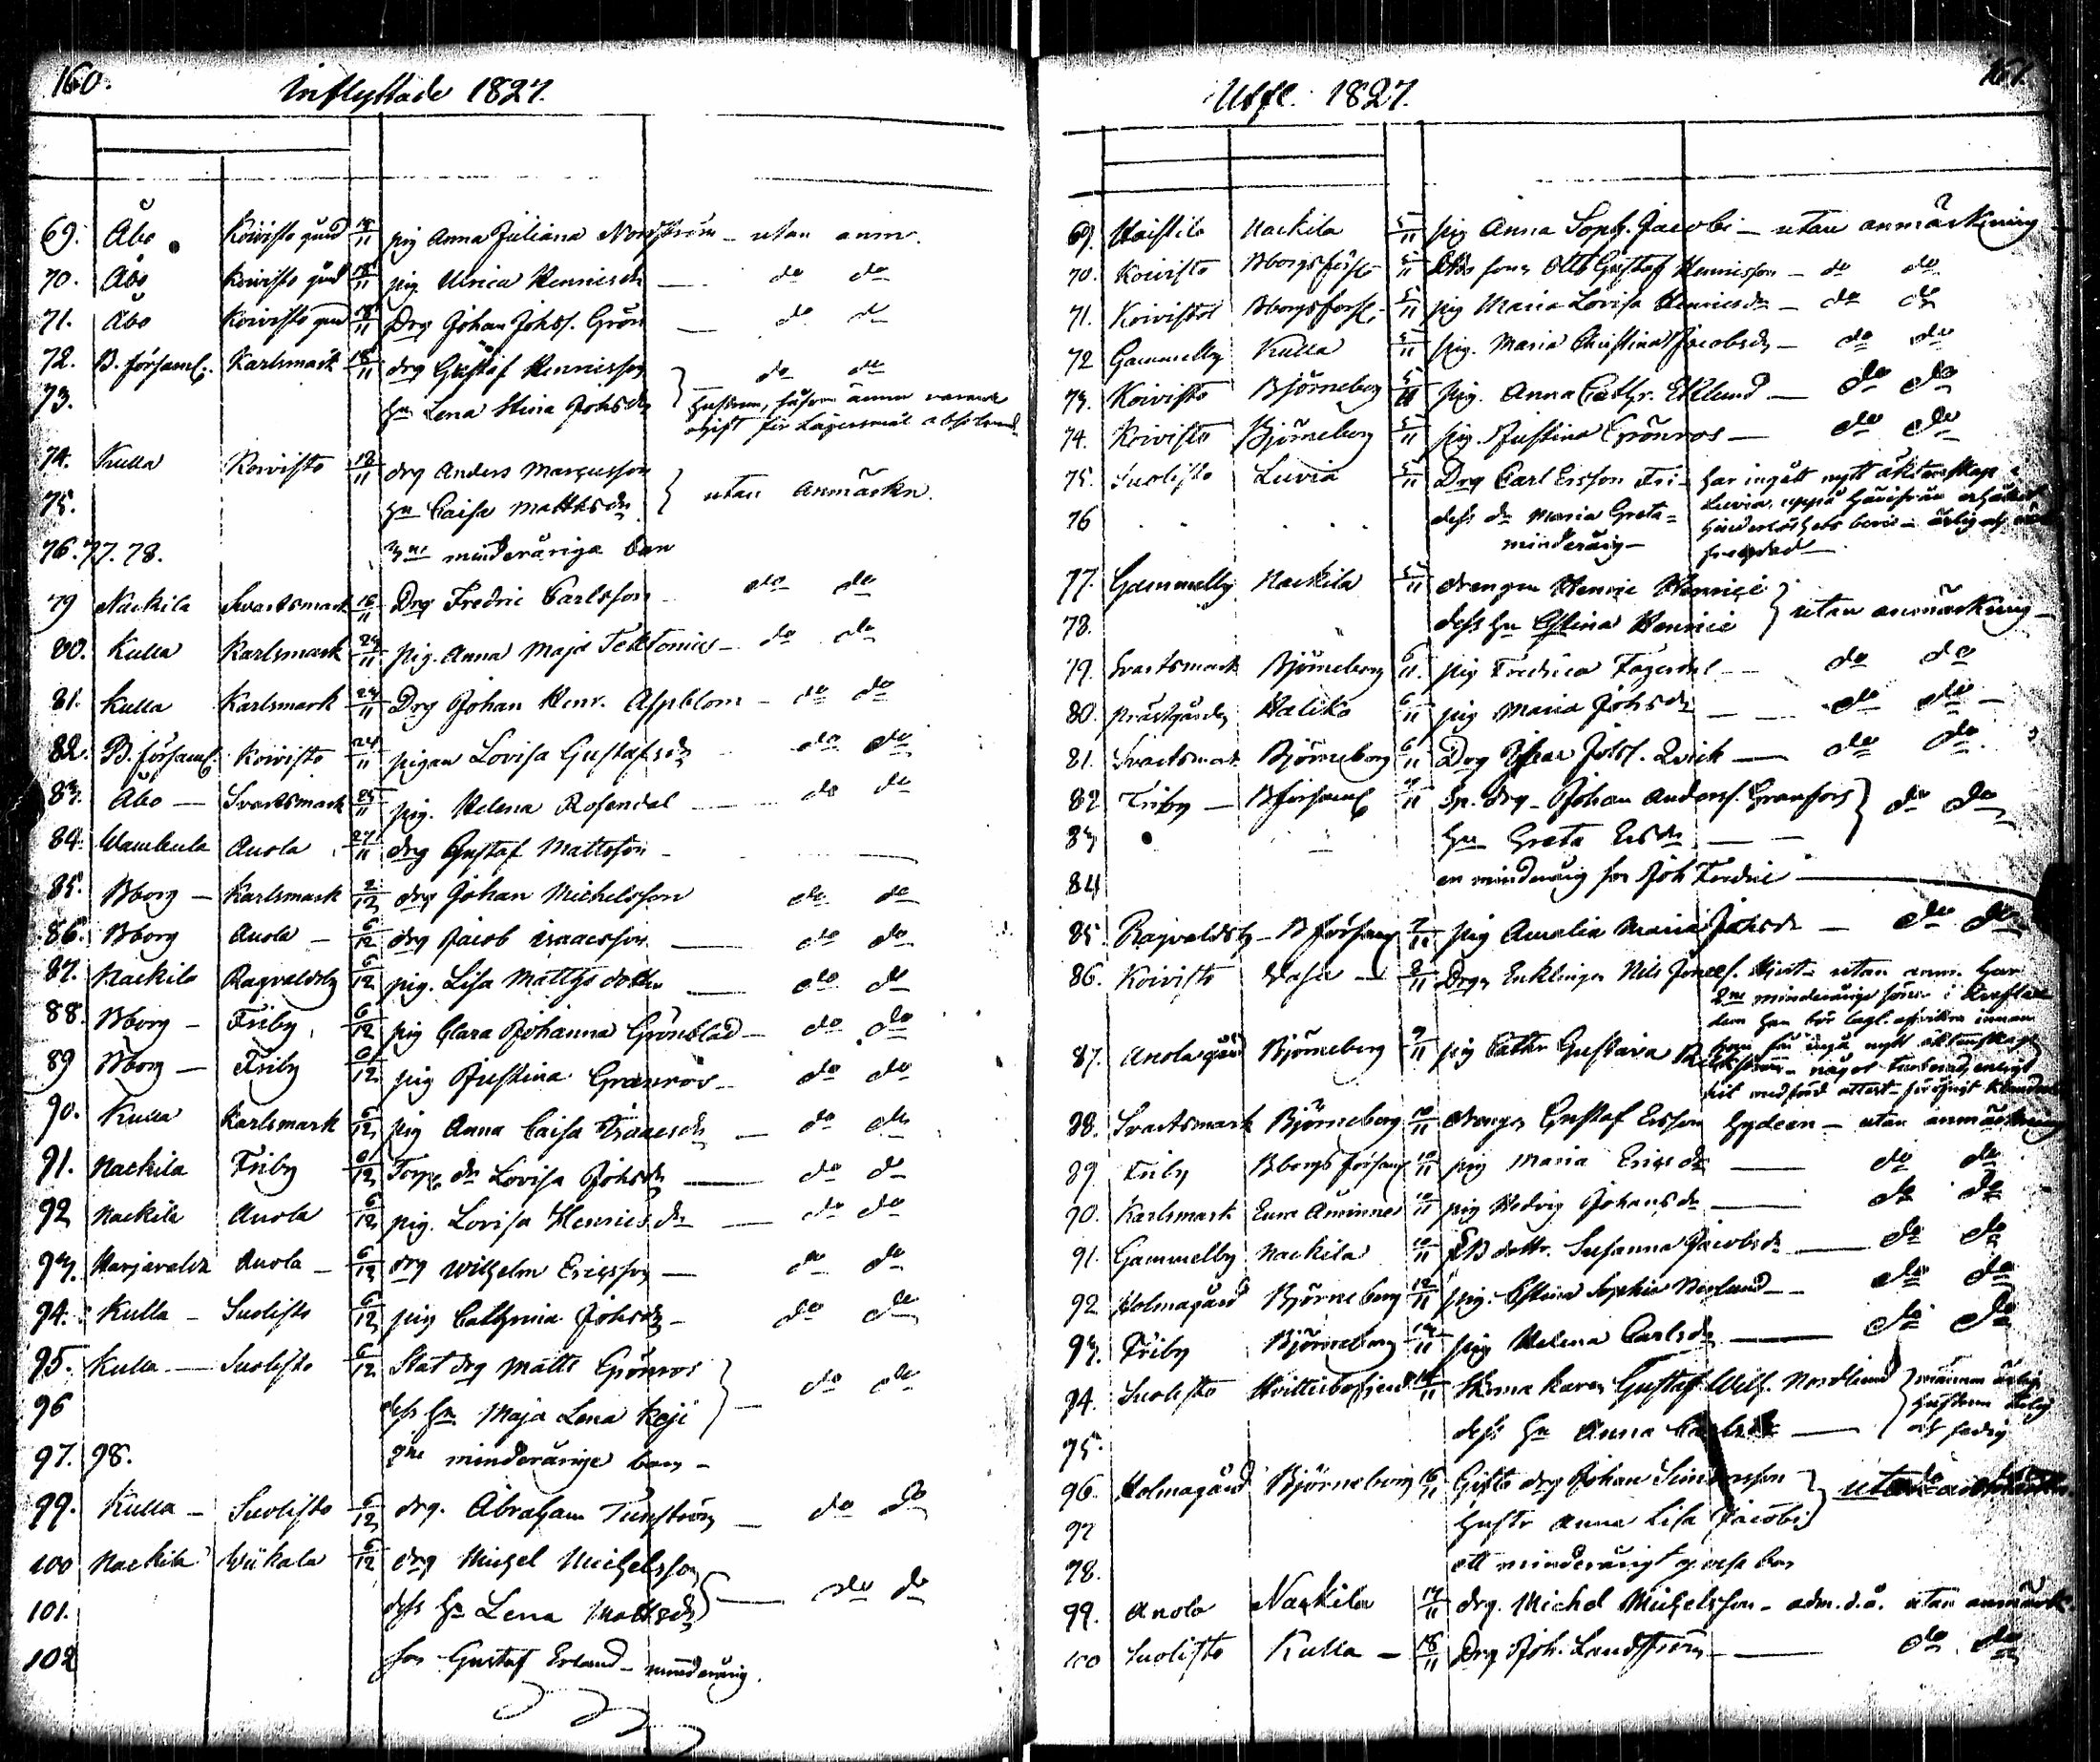 160.
Inflyttade 1827.
69. Åbo Koivisto gård 18/11 pig Anna Juliana Norrström - utan anm.
70. Åbo Koivisto gård 18/11 pig Ulrica Henricsdr do do
71. Åbo Koivisto gård 18/11 Drg Johan Johss. Grön do do
72. B. församl. Karlsmark 18/11 drg Gustaf Henricsson do do
73. hu Lena Stina Johsdr hustrun, såsom
74. Kulla Koivisto 18/11 drg Anders Marcusson
75. hu Caisa Mattsdr utan anmärkn.
76. 77. 78. 3ne minderåriga barn
79 Nackila Svartsmark 18/11 Drg Fredric Carlsson do do
80. Kulla Karlsmark 24/11 pig. Anna Maja - do do
81. Kulla Karlsmark 24/11 Drg Johan Henr. Aspblom - do do
82. B. församl. Koivisto 24/11 pigan Lovisa Gustafsdr do do
83. Åbo — Svartsmark 25/11 pig. Helena Rosendal do do
84. Anola 27/11 drg Gustaf Mattsson
85. Bborg - Karlsmark 2/12 drg Johan Michelsson do do
86. Bborg Anola - 6/12 drg Jacob Isaacsson do do
87. Nackila Ragvaldsby 6/12 pig. Lisa Matts dotter do do
88. Bborg - Friby 6/12 pig Clara Johanna Grönblad - do do
89 Bborg — Friby 6/12 pig Justina Granroos - do do
90. Kulla Karlsmark 6/12 pig Anna Caisa Isaacsdr - do do
91. Nackila Friby 6/12 Torp. dr Lovisa Johsdr — do do
92 Nackila Anola 6/12 pig. Lovisa Henricsdr — do do
93. Harjavalda Anola - 6/12 drg Wilhelm Ericsson — do do
94. Kulla - Suolisto 6/12 pig Cathrina Johsdr - do do
95. Kulla — Suolisto 6/12 Stat drg Matts Grönros
96 dess hu Maja Lena do do
97. 98. 2ne minderårige barn -
99. Kulla - Suolisto 6/12 drg. Abraham Tunström — do do
100 Nackila Wiikala 6/12 drg Michel Michelsson
101. dess hu Lena Mattsdr — do do
102 son Gustaf Erland - minderårig.
161.
Utfl. 1827.
69. Haistila Nackila 5/11 pig Anna Soph. Jacobi — utan anmärkning
70. Koivisto Bborgs förs. 5/11 son Otto Gustaf Henricsson - do do
71. Koivisto Bborgs förs. 5/11 pig Maria Lovisa Henricsdr - do do
72 Gammelby Kulla 5/11 pig. Maria Christina Jacobsdr - do do
73. Koivisto Björneborg 5/11 pig. Anna Cathr. Eklund — do do
74. Koivisto Björneborg 5/11 pig. Justina Grönroos — do do
75. Suolisto Luvia 5/11 Drg Carl Ersson Fri- har ingått nytt äktenskap i
76 dess dr Maria Greta - Luvia,
minderårig -
77. Gammelby Nackila 5/11 drengen Henric Henrici
78. dess hu Stina Henrici utan anmärkning -
79. Svartsmark Björneborg 6/11 pig Fredrica do do
80. Prästgården Haliko 6/11 pig Maria Johsdr do do
81. Svartsmark Björneborg 6/11 Drg Johss. Qvick — do do
82 Friby — B församl 7/11 drg Johan Anderss. Granfors do do
83 hu Greta Ersdr
84 en minderårig son Joh Fredric
85. Ragvaldsby - B församl 7/11 pig Amalia Maria Johsdr - do do
86. Koivisto Vasa - 9/11 Drg Enklingen Nils Hjort - utan anm. har
2ne minderårige söner i
87. Anola gård Björneborg 9/11 pig Cathr Gustava
88. Svartsmark Björneborg 10/11 drengen Gustaf Ersson Hydeen - utan anmärkning
89. Friby Bborgs församl 10/11 pig Maria Ericsdr — do do
90. Karlsmark Eura Åminne 10/11 pig Hedvig Johansdr — do do
91. Gammelby Nackila 10/11 dottr. Susanna Jacobsdr — do do
92 Holmagård Björneborg 12/11 pig. Stina Sophia Norlund - do do
93. Friby Björneborg 14/11 pig Helena Carlsdr — do do
94. Suolisto 14/11 Gustaf Wilh. Nordlund mannen ärlig
95. dess hu Anna Carlsdr — hustrun
96. Holmagård Björneborg 16/11 Gifta drg Johan Simonsson
97 Hustr Anna Lisa Jacobi
98. ett minderårigt
99. Anola Nackila 17/11 drg. Michel Michelsson - adm. d. å. utan anmärk.
100 Suolisto Kulla - 18/11 Drg Joh. Landström — do do